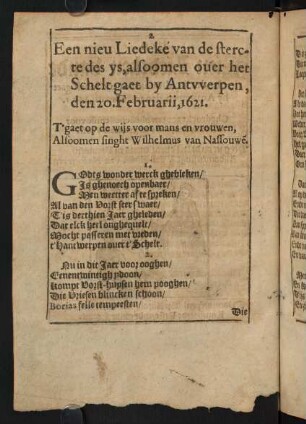 2.
Een nieu Liedeke van de sterc-
te des ys, alsoomen ouer het
Schelt gaet by Antvverpen,
den 20. Februarii, 1621.
T'gaet op de wijs voor mans en vrouwen,
Alsoomen singht Wilhelmus van Nassouwē.
1.
GOdts wonder werck ghebleken/
Is ghenoech openbaer/
Men weeter af te spreken/
Al van den Vorst seer swaer/
T is derthien Jaer gheleden/
Dat elck heel onghequelc/
Mocht passeren met vreden/
t'hantwerpen ouer t' Schelt.
2.
Nu in dit Jaer voor ooghen/
Eenentwintigh ydoon/
Kompt Vorst-hupsen hem pooghen/
Die Vriesen blincken schoon/
Borias felle tempeesten/
Die